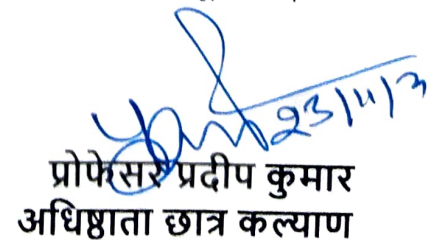 23/11/3
प्रोफेसर प्रदीप कुमार
अधिष्ठाता छात्र कल्याण